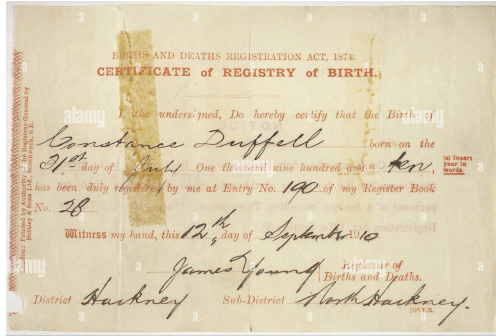 BIRTHS AND DEATHS REGISTRATION ACT, 1874.
CERTIFICATE of REGISTRY of BIRTH.
I, the undersigned, Do hereby certify that the Birth of
Constance Duffell born on the
31st day of July One thousand nine hundred and ten,
(a) Insert year in words.
has been duly registered by me at Entry No. 190 of my Register Book
No. 28
Witness my hand, this 12th day of September 1910
James Young Registrar of
Births and Deaths.
District Hackney Sub-District North Hackney.
[OVER.
alamy